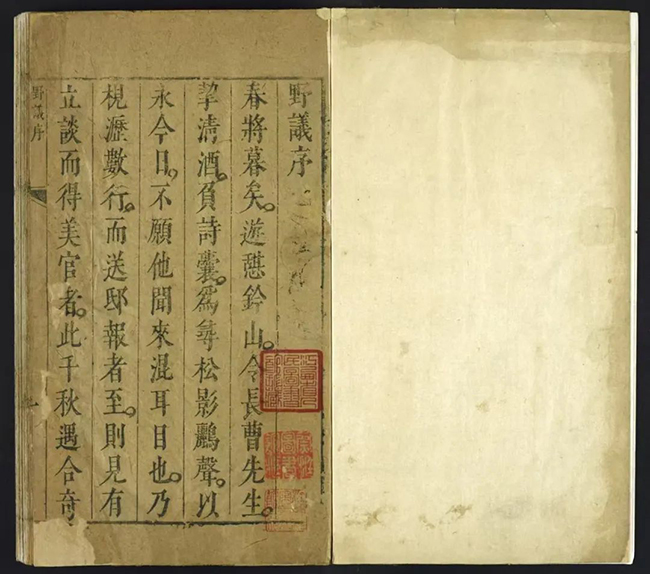 野議序
春將暮矣。遊憇鈐山。令長曹先生。
挈清酒。負詩囊。爲尋松影鸝聲。以
永今日。不願他聞來混耳目也。乃
梘瀝數行。而送邸報者至。則見有
立談而得美官者。此千秋遇合奇
野議序
一